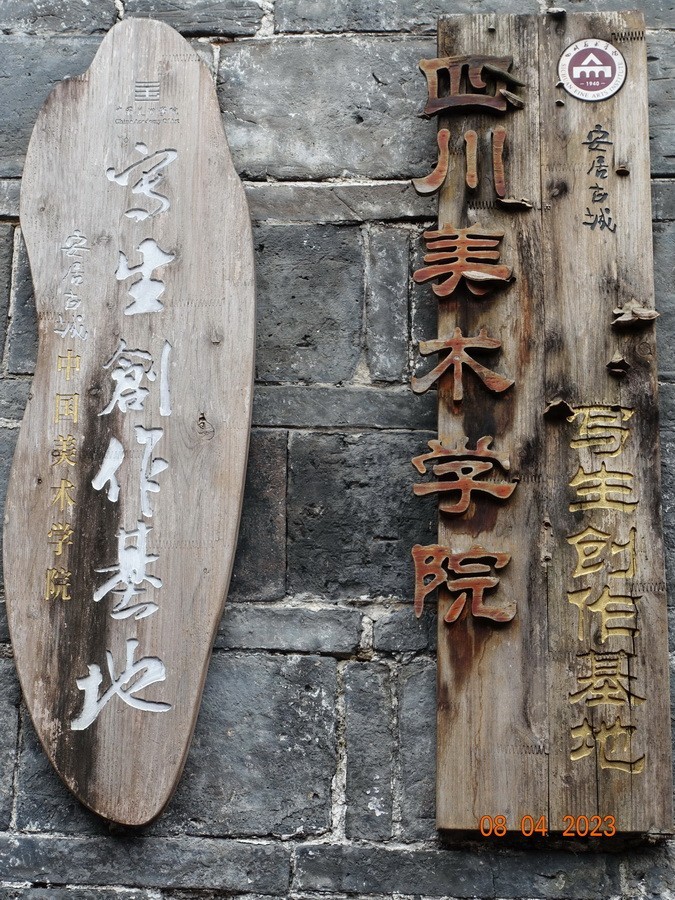 中国美术学院
China Academy Of Art
安居古城
中国美术学院
寫生創作基地
四川美术学院
SICHUAN FINE ARTS INSTITUTE
1940
四川美术学院
安居古城
写生创作基地
08 04 2023